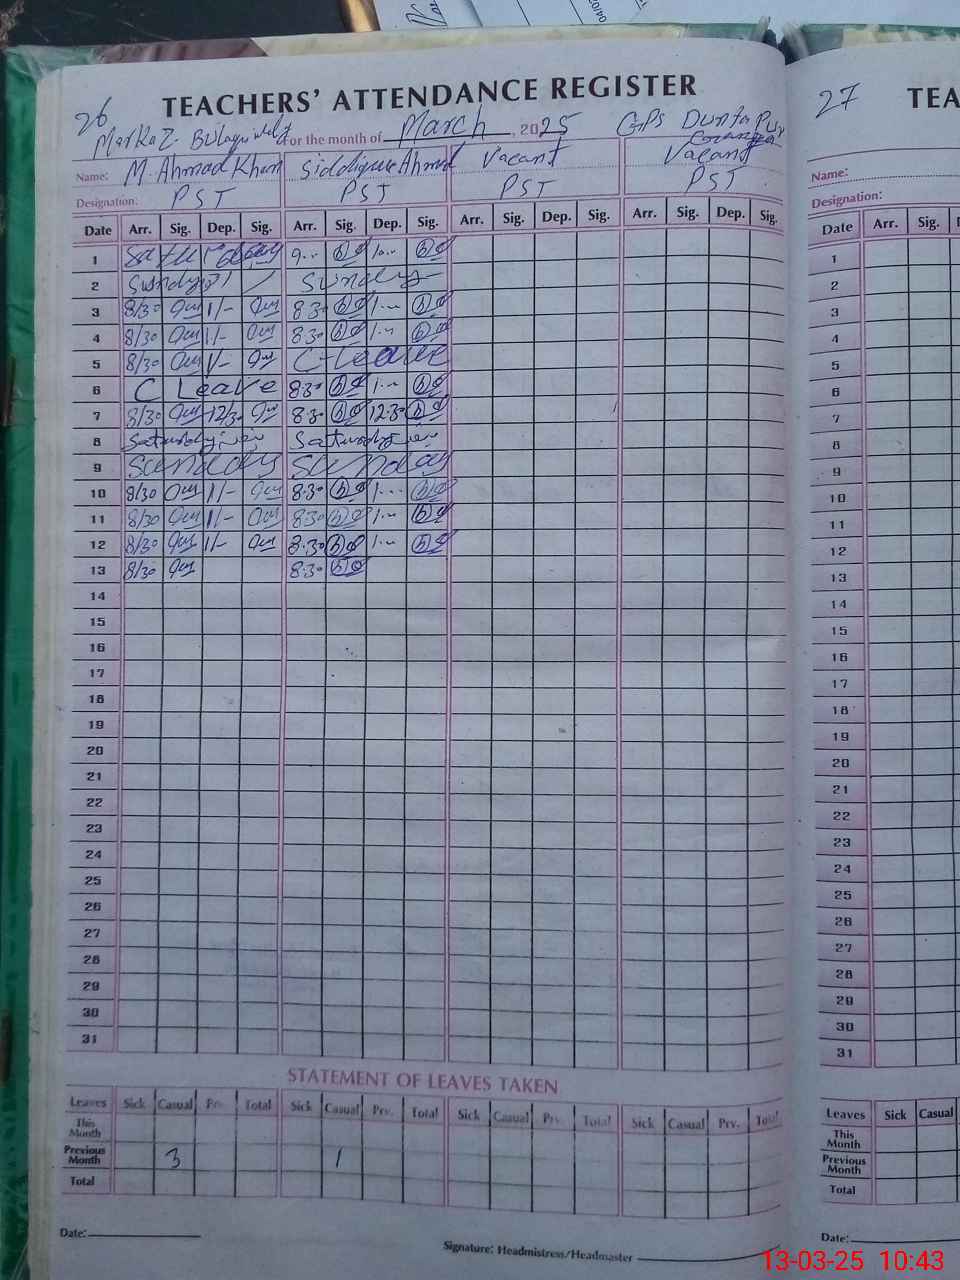 26
TEACHERS' ATTENDANCE REGISTER
Markaz for the month of March, 2025 GPS
Name: M. Ahmad Khan Siddique Ahmad Vacant Vacant
Designation: PST PST PST PST
Date Arr. Sig. Dep. Sig. Arr. Sig. Dep. Sig. Arr. Sig. Dep. Sig. Arr. Sig. Dep. Sig.
1 Saturday 9-- 10--
2 Sunday Sunday
3 8/30 1/- 8.30 1--
4 8/30 1/- 8.30 1--
5 8/30 1/- C-Leave
6 C Leave 8.30 1--
7 8/30 12/30 8.30 12.30
8 Saturday Saturday
9 Sunday Sunday
10 8/30 1/- 8.30 1--
11 8/30 1/- 8.30 1--
12 8/30 1/- 8.30 1--
13 8/30 8.30
14
15
16
17
18
19
20
21
22
23
24
25
26
27
28
29
30
31
STATEMENT OF LEAVES TAKEN
Leaves Sick Casual Prv. Total Sick Casual Prv. Total Sick Casual Prv. Total Sick Casual Prv. Total
This Month
Previous Month 3 1
Total
Date:
Signature: Headmistress/Headmaster
27
TEA
Name:
Designation:
Date Arr. Sig.
1
2
3
4
5
6
7
8
9
10
11
12
13
14
15
16
17
18
19
20
21
22
23
24
25
26
27
28
29
30
31
Leaves Sick Casual
This Month
Previous Month
Total
Date:
13-03-25 10:43